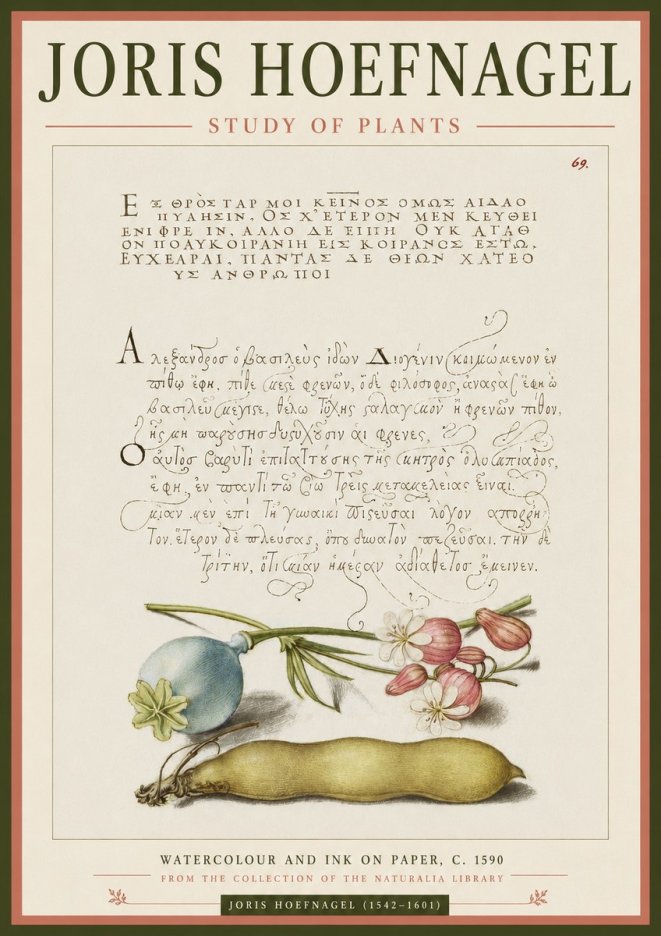 JORIS HOEFNAGEL
STUDY OF PLANTS
69.
Ε Ξ ΘΡΟΣ ΤΑΡ ΜΟΙ ΚΕῖΝΟΣ ΟΜΩΣ ΑΙΔΑΟ
ΠΥΛΗΣΙΝ, ΟΣ Χ' ΕΤΕΡΟΝ ΜΕΝ ΚΕΥΘΕΙ
ΕΝΙ ΦΡΕ ΙΝ, ΑΛΛΟ ΔΕ ΕΙΠΗ ΟΥΚ ΑΓΑΘ
ΟΝ ΠΟΛΥΚΟΙΡΑΝΙΗ ΕΙΣ ΚΟΙΡΑΝΟΣ ΕΣΤΩ,
ΠΑΝΤΑΣ ΔΕ ΘΕΩΝ ΧΑΤΕΟ
ΥΣ ΑΝΘΡΩΠΟΙ
Αλεξανδρος ὁ βασιλεὺς ἰδὼν Διογένιν κοιμώμενον ἐν
πίθῳ ἔφη, πίθε μεσὲ φρενῶν, ὁ δὲ φιλόσοφος, ἀναστὰς ἔφη ὦ
βασιλεῦ μέγιστε, θέλω τύχης σαλαγμὸν ἢ φρενῶν πίθον,
ἧς μὴ παρούσης δυστυχοῦσιν αἱ φρενες,
Ο αὐτὸς τῆς μητρὸς ὀλυμπιάδος,
ἔφη, ἐν παντὶ τῷ βίῳ τρεῖς μεταμελειας εἶναι
μίαν μεν επὶ τῇ γυναικὶ πιστεῦσαι λόγον
τον. ἕτερον δὲ πλευσας, ὅπου δυνατὸν πεζεῦσαι. τὴν δὲ
τρίτην, ὅτι μίαν ἡμέραν ἀδιάθετος ἔμεινεν.
WATERCOLOUR AND INK ON PAPER, C. 1590
FROM THE COLLECTION OF THE NATURALIA LIBRARY
JORIS HOEFNAGEL (1542–1601)